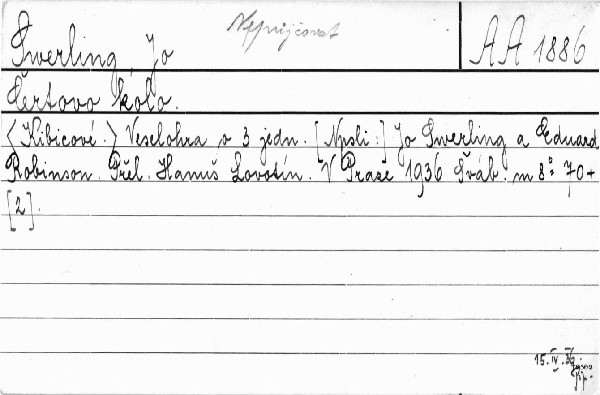 Nepůjčovat
Swerling, Jo
AA 1886
Čertovo kolo.
(Kibicové.) Veselohra o 3 jedn. [Npsli:] Jo Swerling a Eduard
Robinson. Přel. Hanuš Lovotín. V Praze 1936 Šváb. m 8° 70 +
[2].
15. IV. 36.